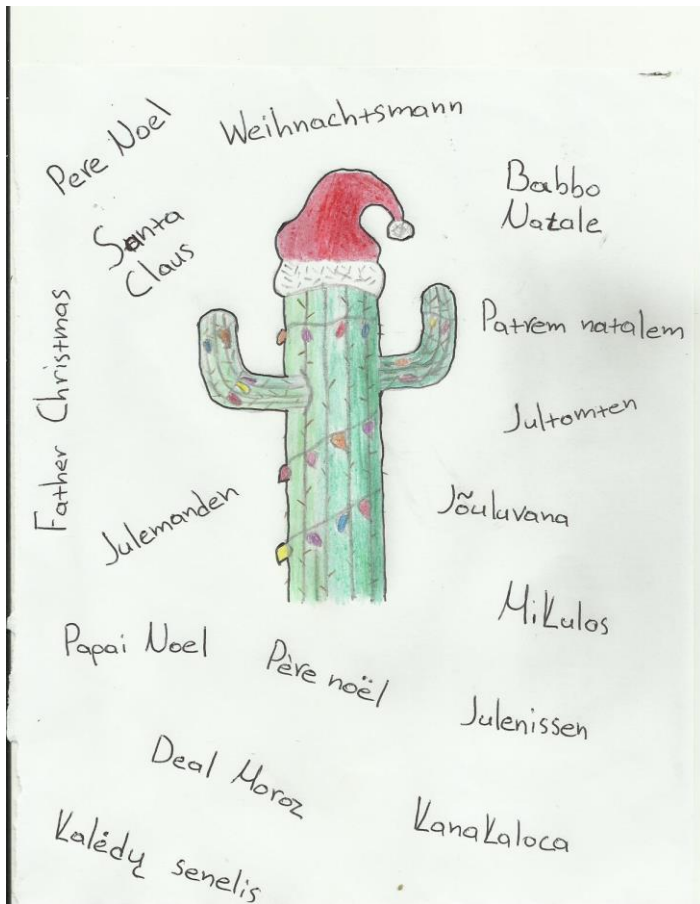 Pere Noel
Weihnachtsmann
Babbo
Natale
Santa
Claus
Father Christmas
Patrem natalem
Jultomten
Julemanden
Jõuluvana
Mikulos
Papai Noel
Père noël
Julenissen
Deal Moroz
Kanakaloca
Kalėdų senelis